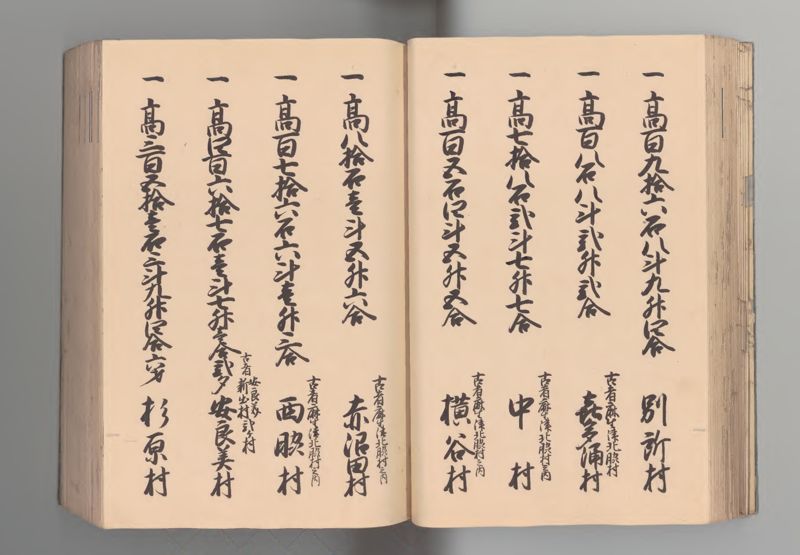 一 高百九拾六石八斗九升四合 別所村
一 高百八石八斗弐升弐合 古者麻生津北脇村 喜多浦村
一 高七拾八石弐斗七升七合 古者麻生津北脇村之内 中村
一 高百五石四斗五升五合 古者麻生津北脇村之内 横谷村
一 高八拾石壱斗五升六合 古者麻生津北脇村之内 赤沼田村
一 高百七拾六石六斗壱升三合 古者麻生津北脇村之内 西脇村
一 高四百六拾七石壱斗七升壱合弐夕 古者 安良美 新出村 弐ヶ村 安良美村
一 高三百五拾壱石三斗九升四合六夕 杉原村